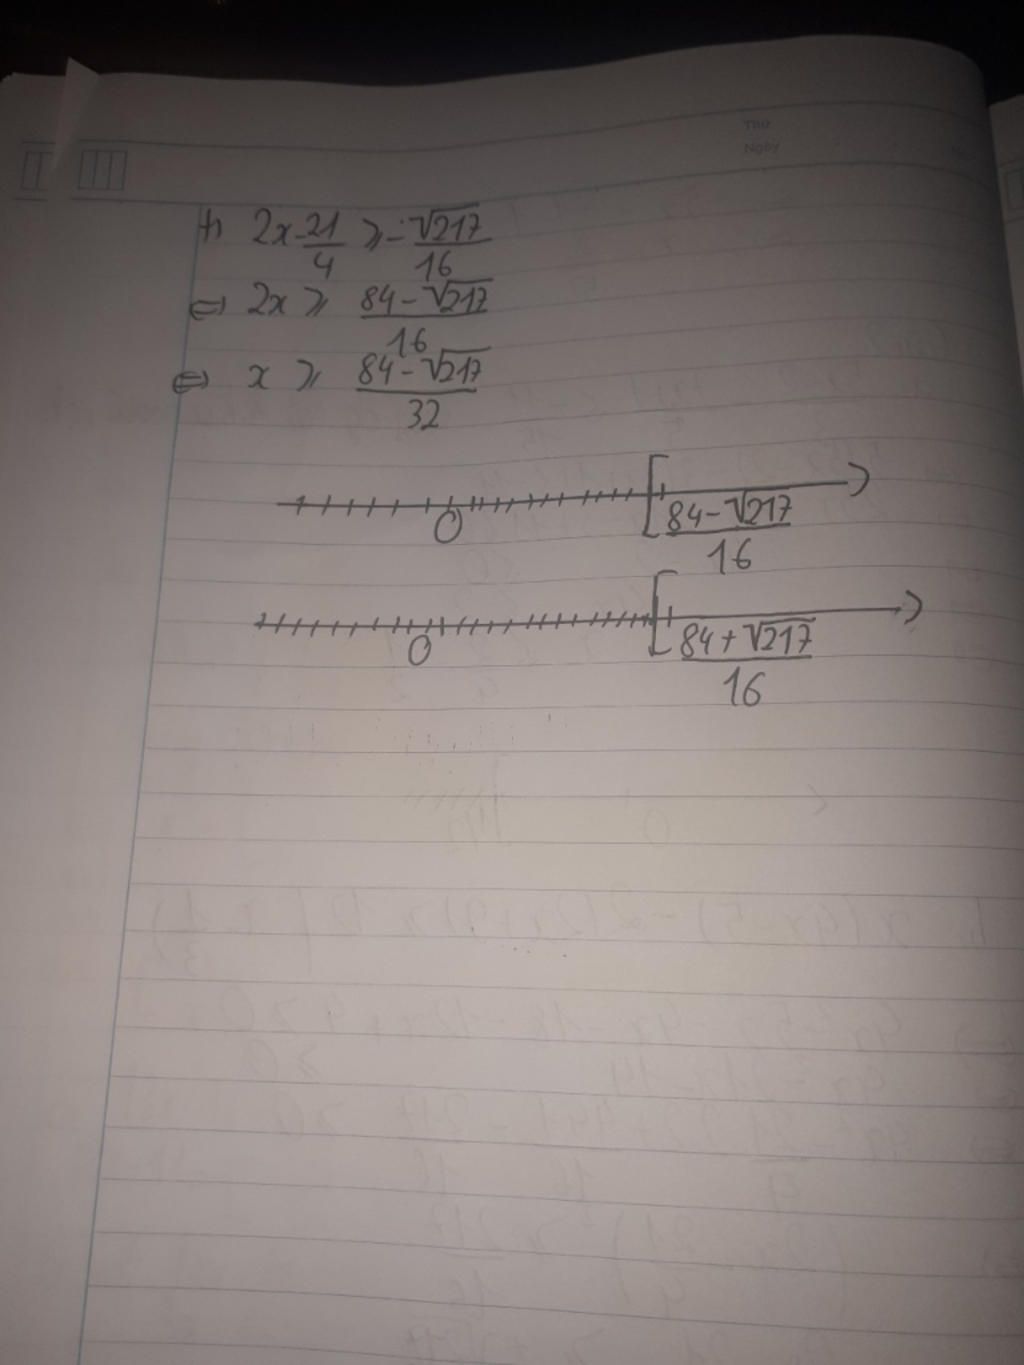 Thứ
Ngày
+) 2x - 21/4 ⩾ - √217/16
⇔ 2x ⩾ (84 - √217)/16
⇔ x ⩾ (84 - √217)/32
0 [ (84 - √217)/16
0 [ (84 + √217)/16